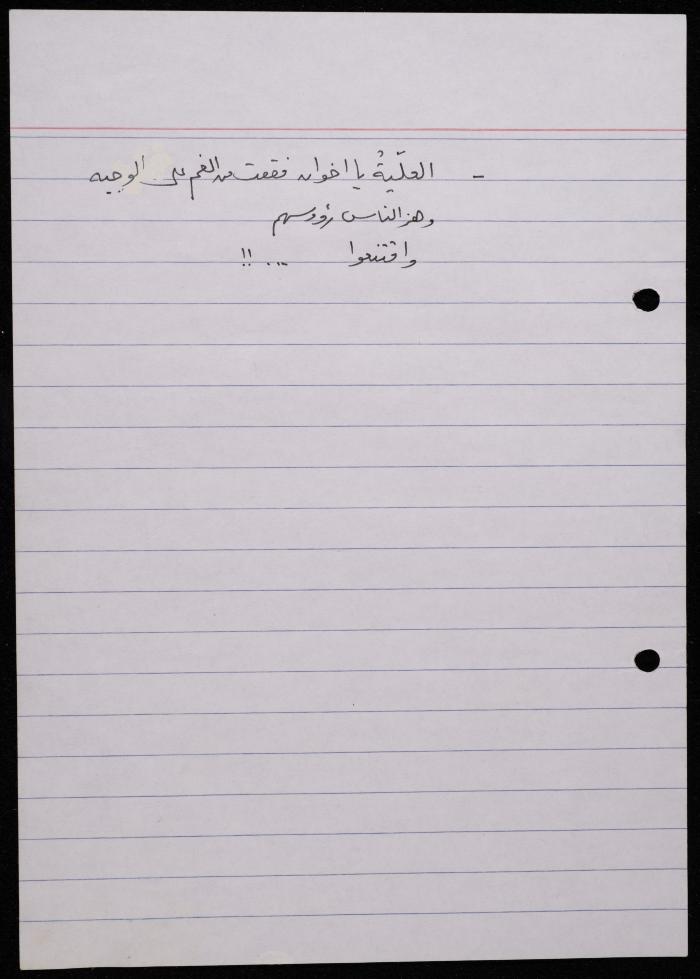 - العلّيةُ يا اخوان فقعت من الغم على الوجيه
وهز الناس رؤوسهم
واقتنعوا ... !!